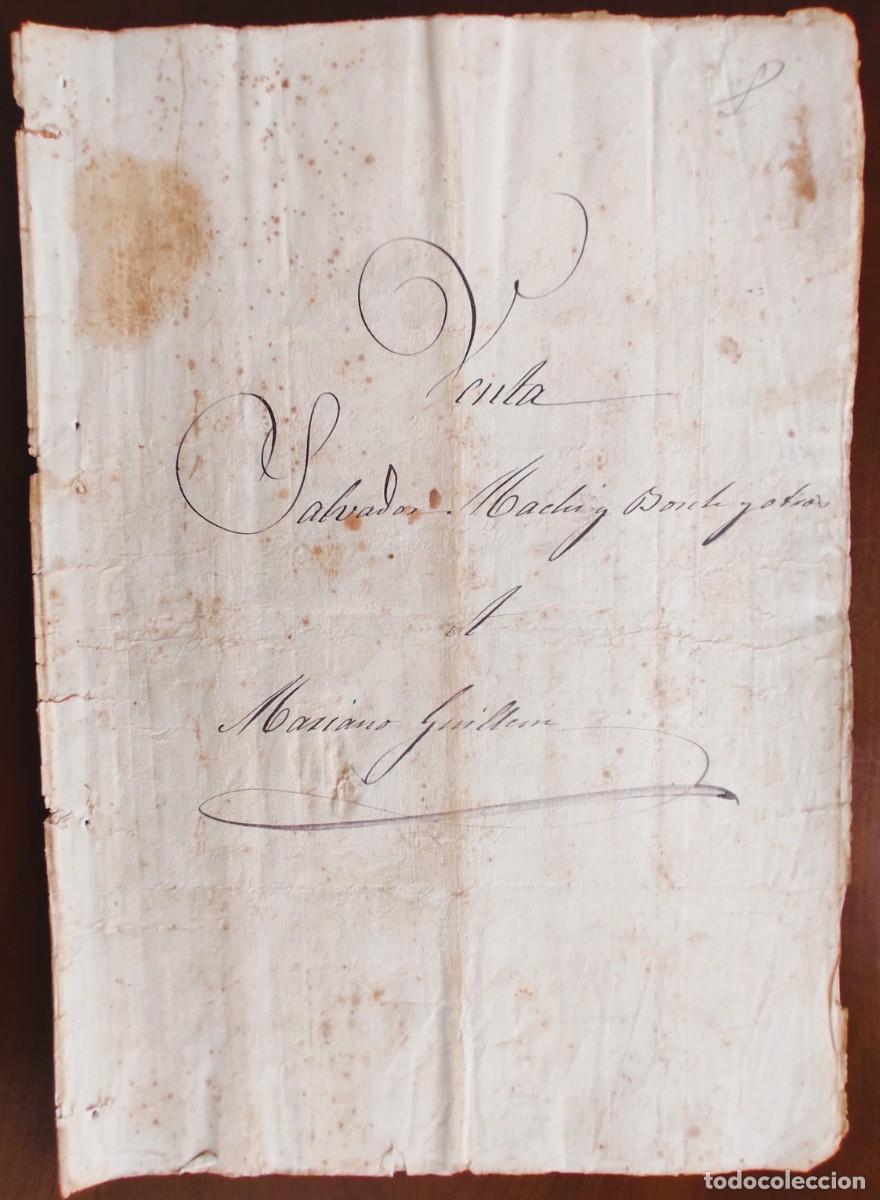 Venta
Salvador Machi y Bosch y otros
A
Mariano Guillem
todocoleccion